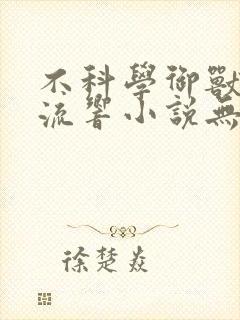 不科學御獸
流響小說無
徐楚焱